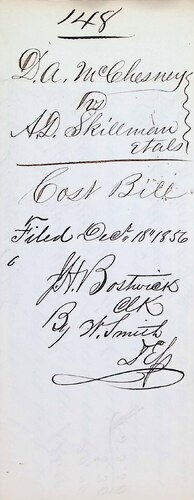 148
D. A. McChesney
vs
A. D. Skillman
et als
Cost Bill
Filed Dec. 18th 1856
J. H. Bostwick
Clk
By W. Smith